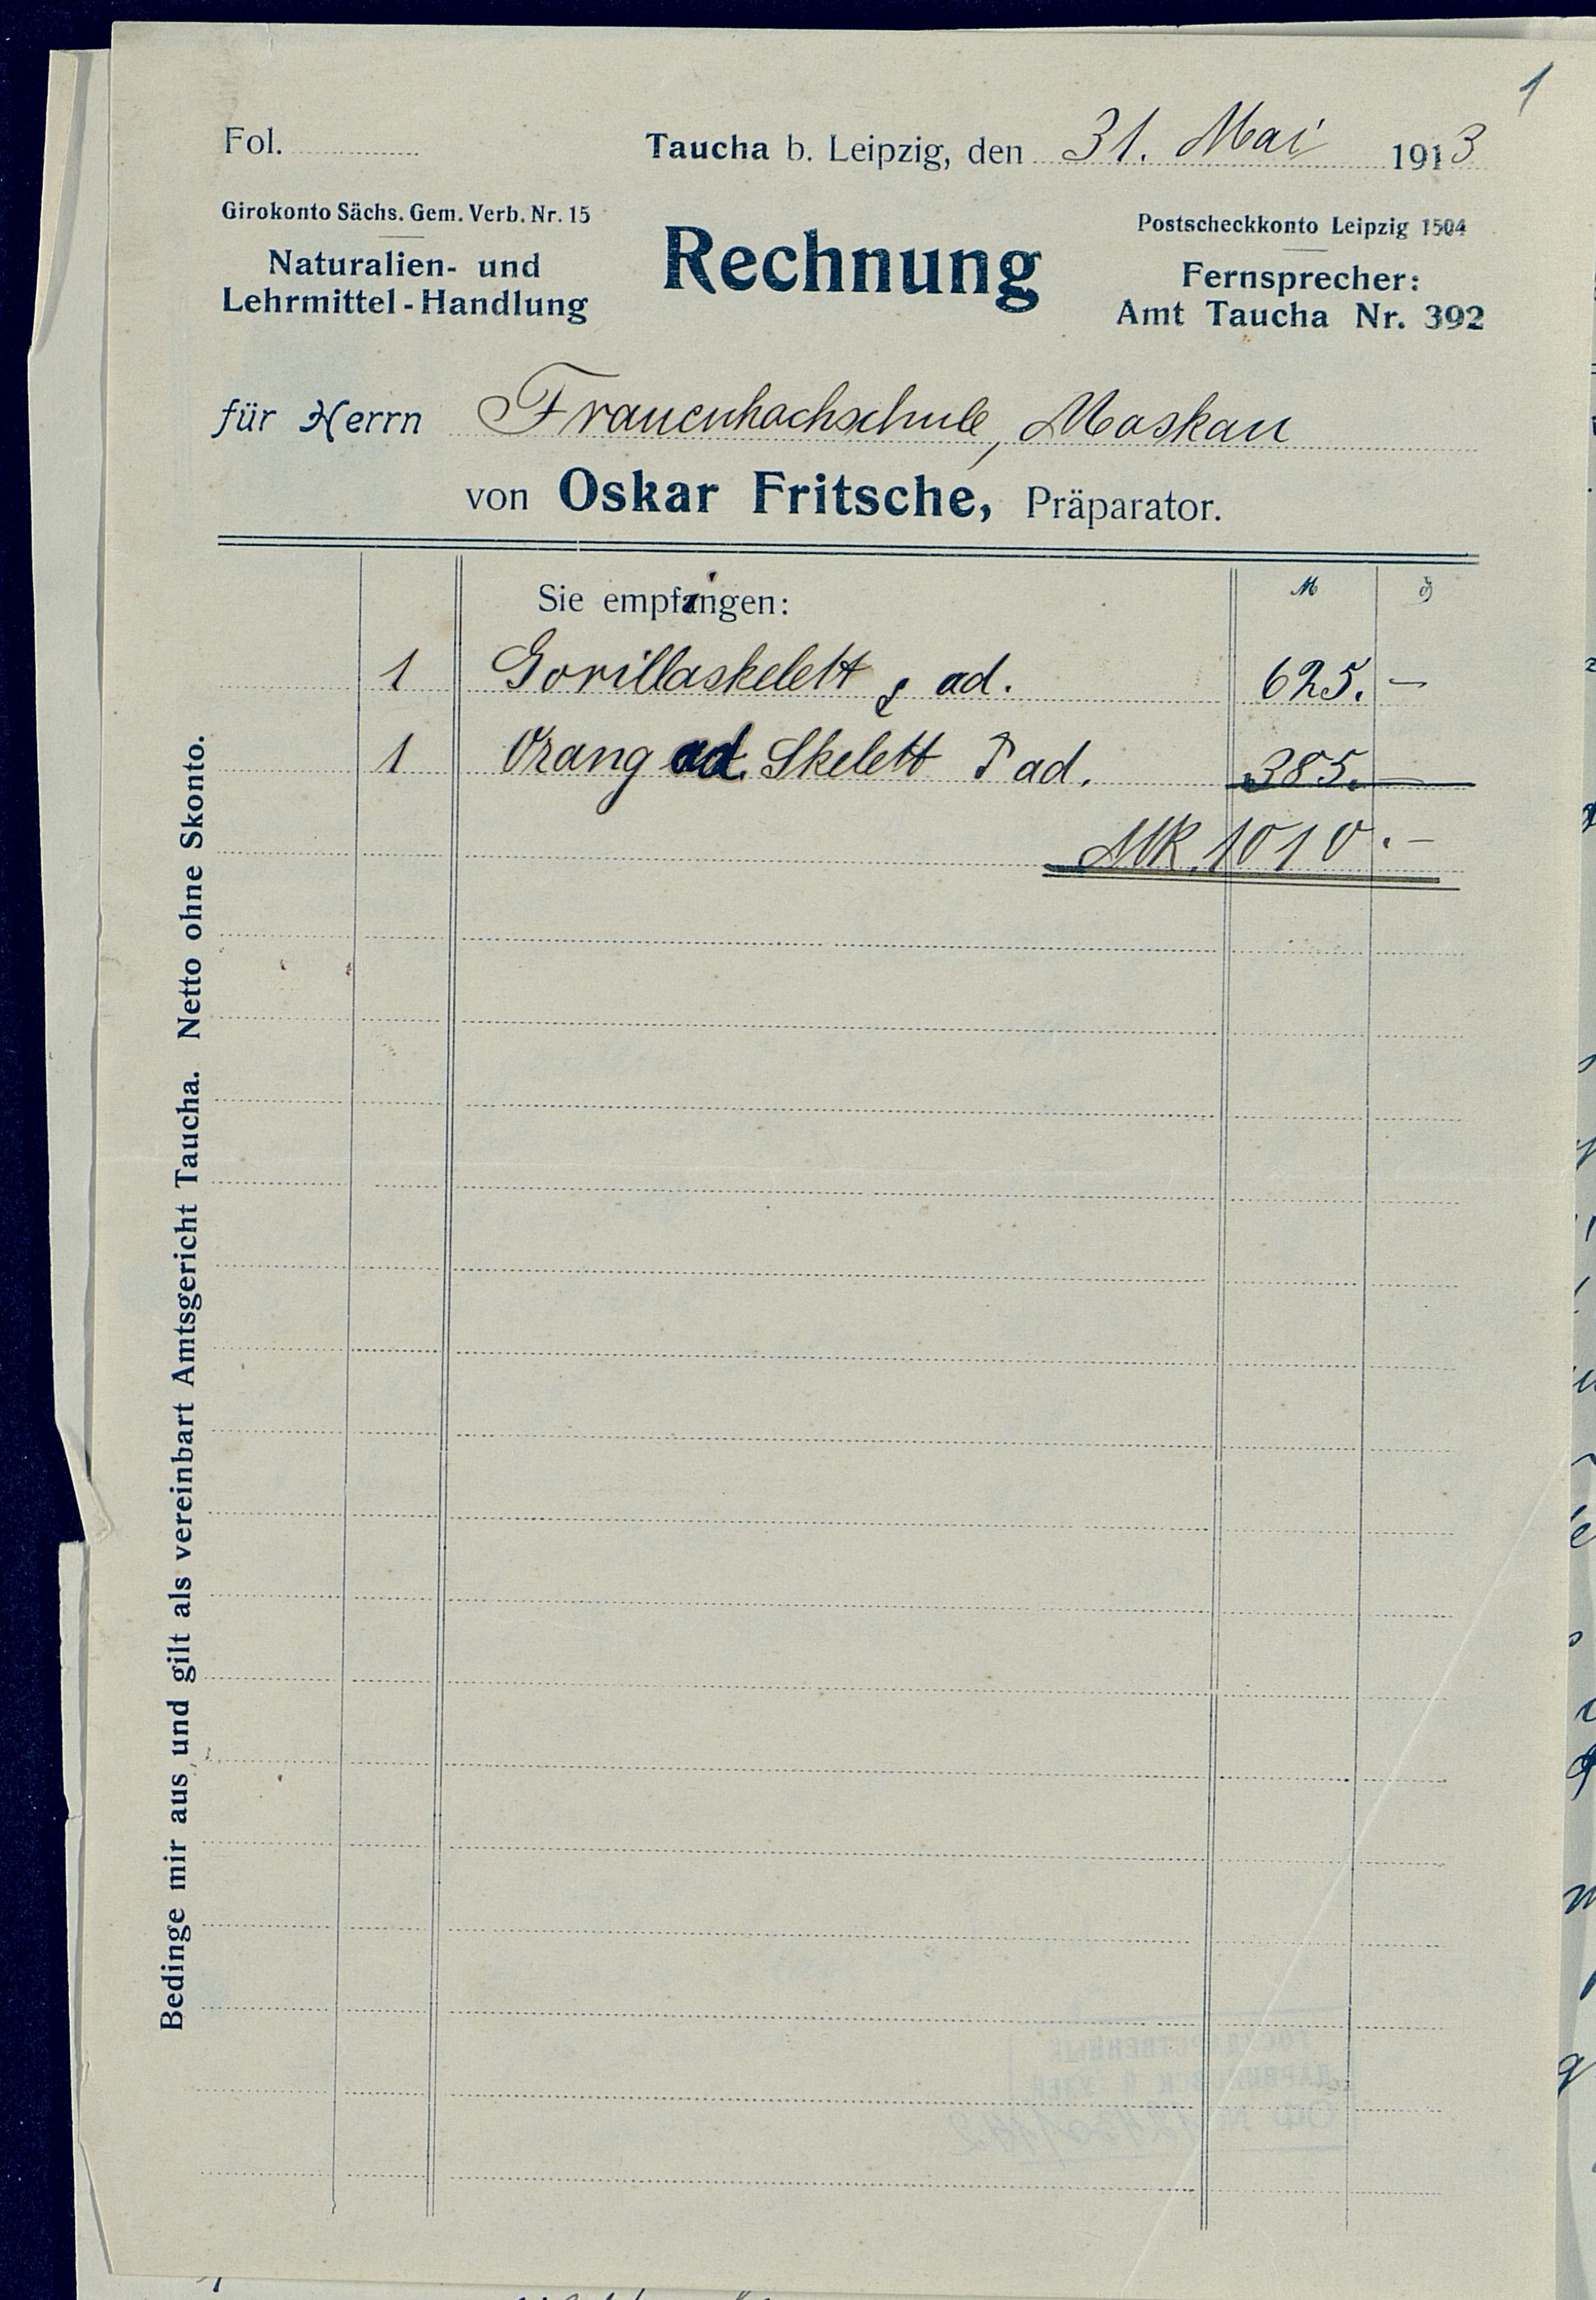 1
Fol. Taucha b. Leipzig, den 31. Mai 1913
Girokonto Sächs. Gem. Verb. Nr. 15
Naturalien- und
Lehrmittel-Handlung
Rechnung
Postscheckkonto Leipzig 1504
Fernsprecher:
Amt Taucha Nr. 392
für Herrn Frauenhochschule, Moskau
von Oskar Fritsche, Präparator.
Sie empfingen: M
1 Gorillaskelett ad. 625. —
1 Orang ad. Skelett ad. 385. —
Mk. 1010. —
Bedinge mir aus und gilt als vereinbart Amtsgericht Taucha. Netto ohne Skonto.